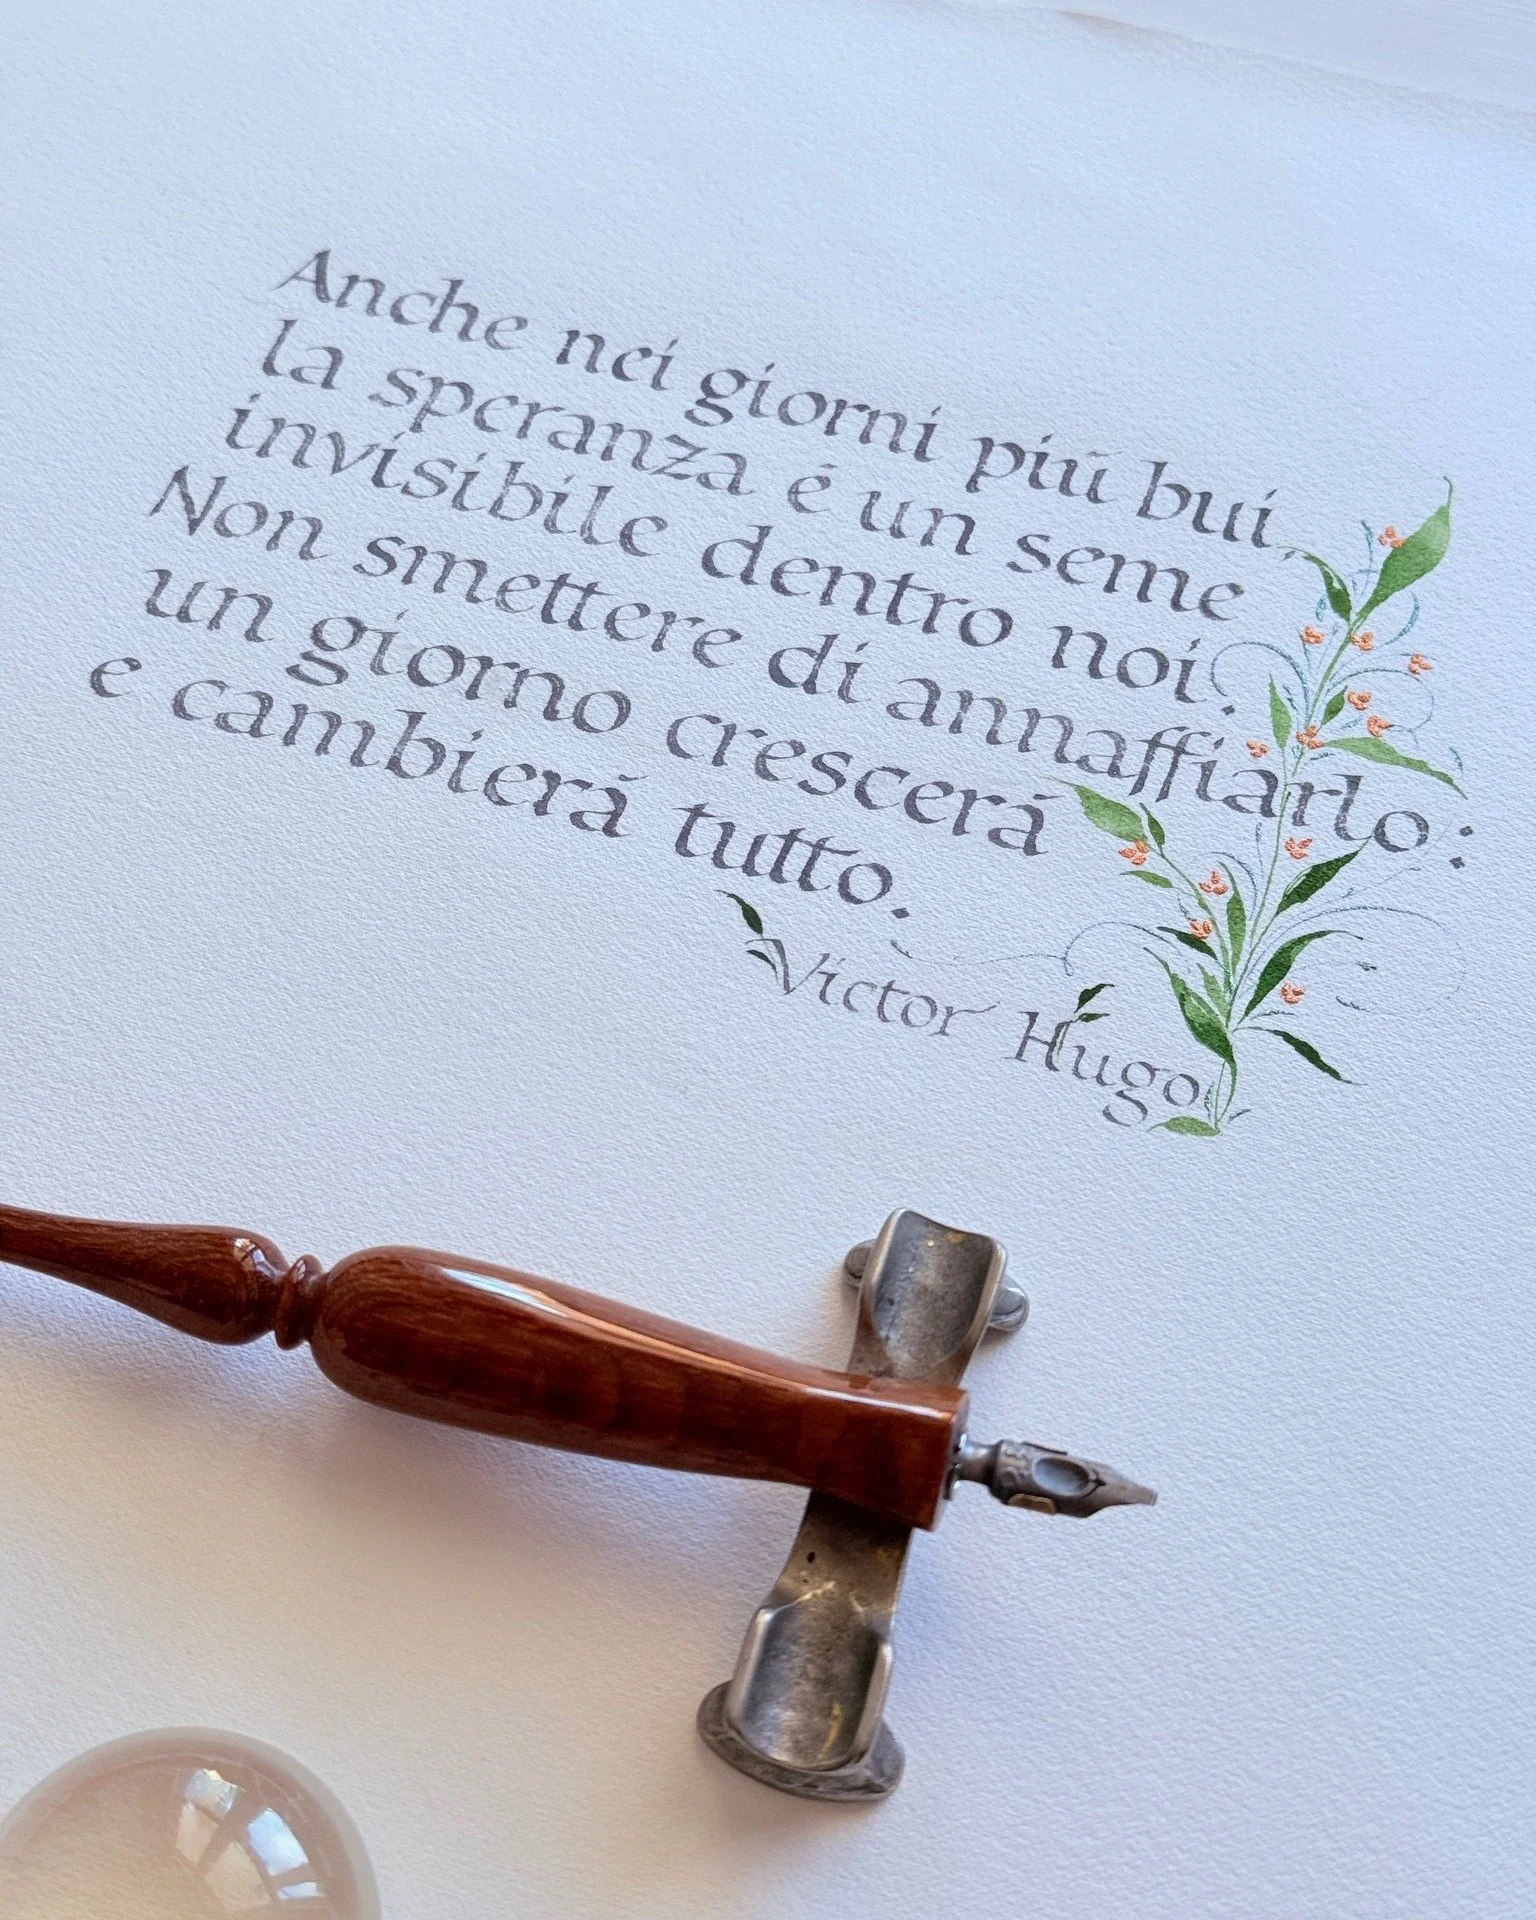 Anche nei giorni piú bui,
la speranza é un seme
invisibile dentro noi.
Non smettere di annaffiarlo:
un giorno crescerá
e cambierá tutto.
Victor Hugo